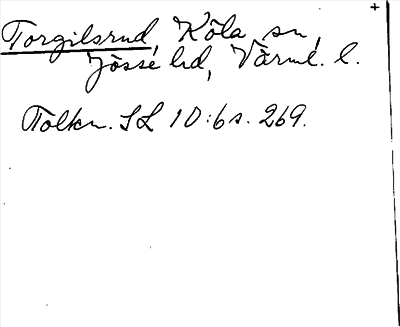 Torgilsrud, Köla sn,
Jösse hd, Värml. l.
Tolkn. SL 10:6 s. 269.